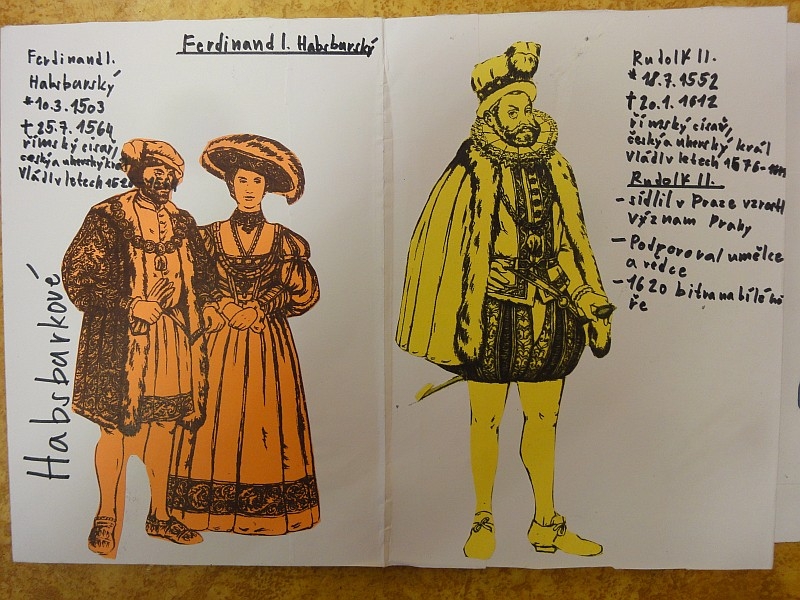 Ferdinand I. Habsburský
Ferdinand I.
Habsburský
*10.3.1503
†25.7.1564
římský císař,
český a uherský král
Vládl v letech 152
Habsburkové
Rudolf II.
*18.7.1552
†20.1.1612
římský císař,
český a uherský král
Vládl v letech 1576-1611
Rudolf II.
- sídlil v Praze vzrostl
význam Prahy
- Podporoval umělce
a vědce
- 1620 bitva na bílé ho
ře